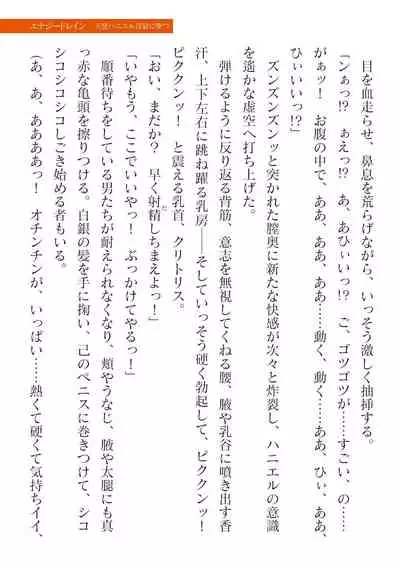 エナジードレイン　天使ハニエル淫獄に堕つ
目を血走らせ、鼻息を荒らげながら、いっそう激しく抽挿する。
「ンぁっ!?　ぁえっ!?　あ、あひぃいっ!?　ご、ゴツゴツが……すごい、の……
がぁッ！　お腹の中で、ああ、ああ、ああ……動く、動く……ああ、ひぃ、ああ、
ひぃいいっ!?」
ズンズンズンッと突かれた膣奥に新たな快感が次々と炸裂し、ハニエルの意識
を遥かな虚空へ打ち上げた。
弾けるように反り返る背筋、意志を無視してくねる腰、腋や乳谷に噴き出す香
汗、上下左右に跳ね躍る乳房――そしていっそう硬く勃起して、ピククンッ！
ピククンッ！　と震える乳首、クリトリス。
「おい、まだか？　早く射精しちまえよっ！」
「いやもう、ここでいいやっ！　ぶっかけてやるっ！」
順番待ちをしている男たちが耐えられなくなり、頬やうなじ、腋や太腿にも真
っ赤な亀頭を擦りつける。白銀の髪を手に掬い、己のペニスに巻きつけて、シコ
シコシコしごき始める者もいる。
（あ、あ、ああああっ！　オチンチンが、いっぱい……熱くて硬くて気持ちイイ、